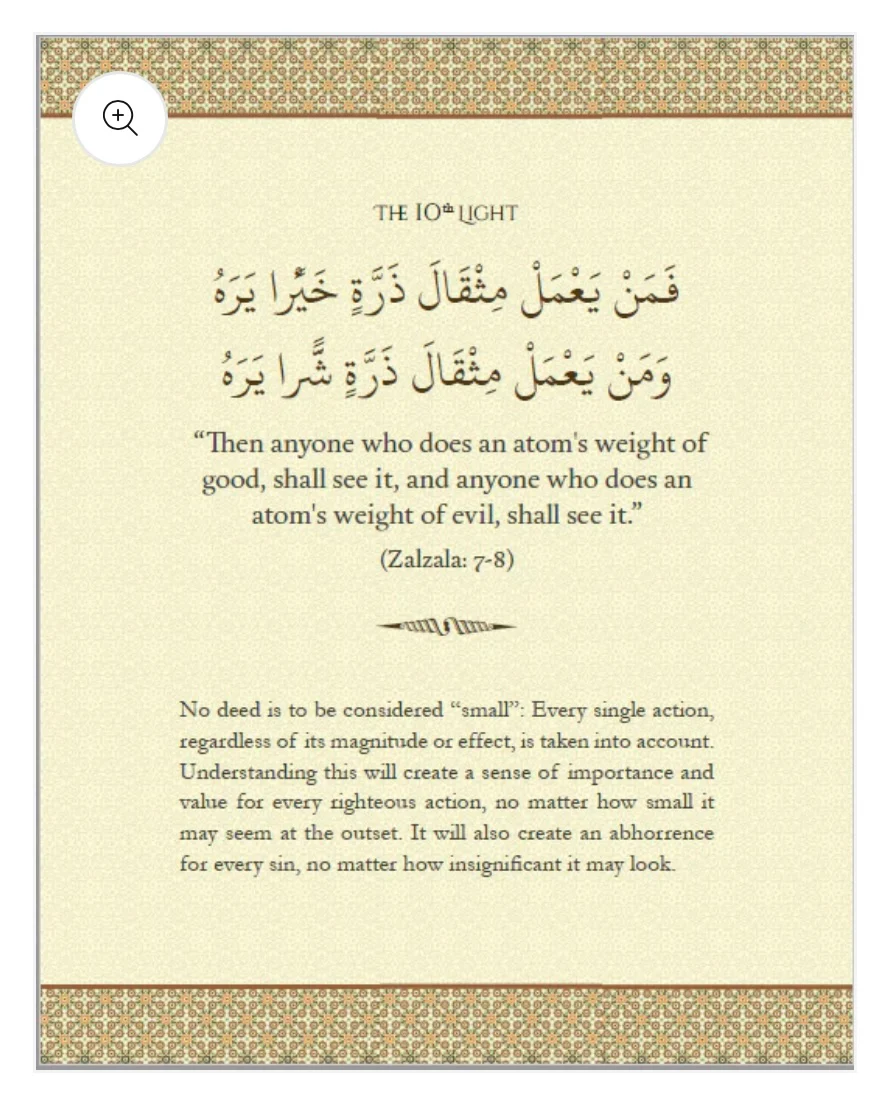 THE 10th LIGHT
فَمَنْ يَعْمَلْ مِثْقَالَ ذَرَّةٍ خَيْرًا يَرَهُ
وَمَنْ يَعْمَلْ مِثْقَالَ ذَرَّةٍ شَّرًا يَرَهُ
“Then anyone who does an atom's weight of
good, shall see it, and anyone who does an
atom's weight of evil, shall see it.”
(Zalzala: 7-8)
No deed is to be considered “small”: Every single action,
regardless of its magnitude or effect, is taken into account.
Understanding this will create a sense of importance and
value for every righteous action, no matter how small it
may seem at the outset. It will also create an abhorrence
for every sin, no matter how insignificant it may look.